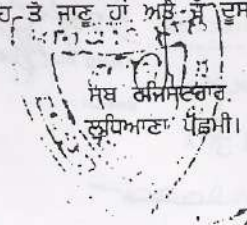 ਹ ਤੋਂ ਜਾਣੂ ਹਾਂ ਅਤੇ
ਸਬ ਰਜਿਸਟਰਾਰ
ਲੁਧਿਆਣਾ ਪੱਛਮੀ।